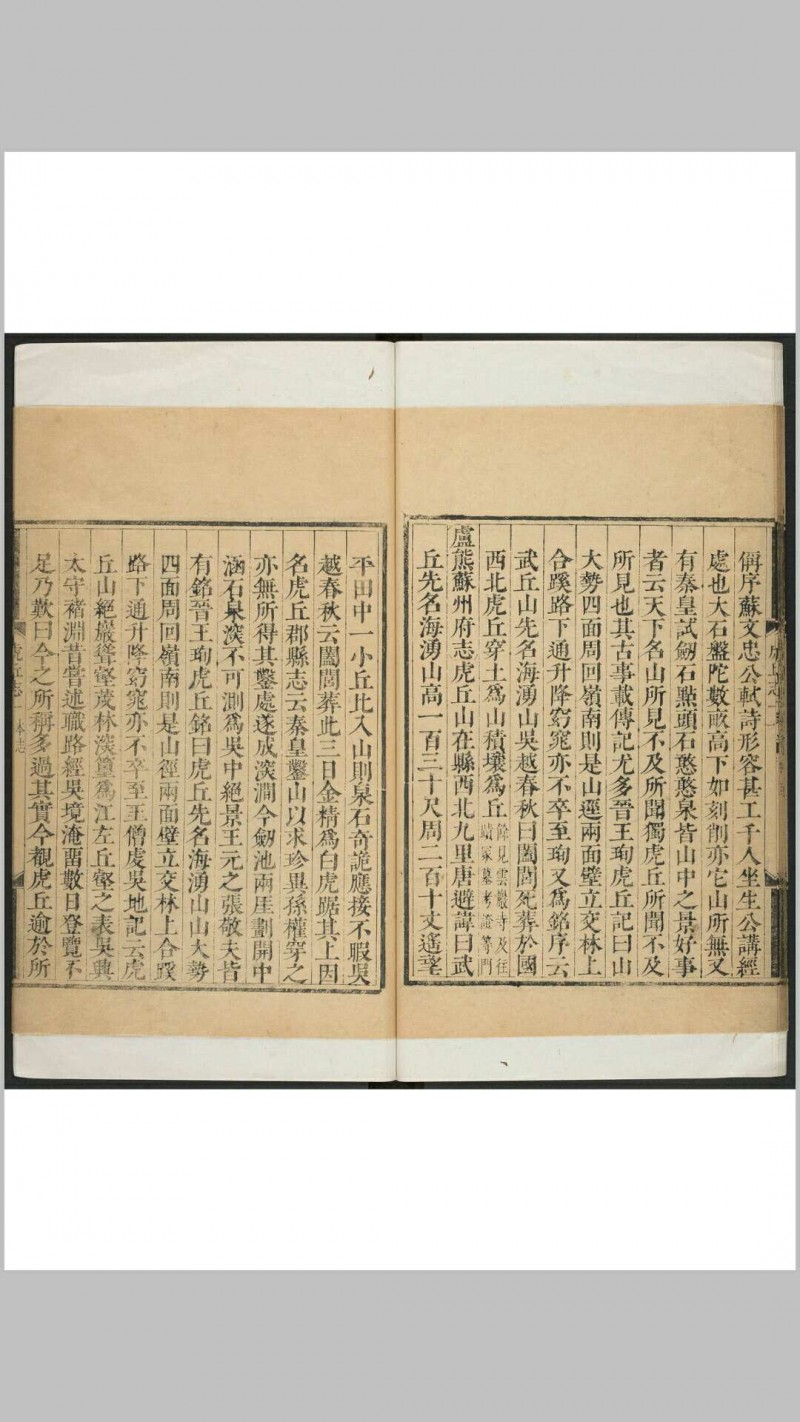 偁序蘇文忠公軾詩形容甚工千人坐生公講經
處也大石盤陀數畝高下如刻削亦它山所無又
有秦皇試劒石點頭石憨憨泉皆山中之景好事
者云天下名山所見不及所聞獨虎丘所聞不及
所見也其古事載傳記尤多晉王珣虎丘記曰山
大勢四面周回嶺南則是山逕兩面壁立交林上
合蹊路下通升降窈窕亦不卒至珣又為銘序云
武丘山先名海湧山吳越春秋曰闔閭死葬於國
西北虎丘穿土為山積壤為丘餘見雲巖寺及往
蹟冢墓考證等門
盧熊蘇州府志虎丘山在縣西北九里唐避諱曰武
丘先名海湧山高一百三十尺周二百十丈遥望
平田中一小丘比入山則泉石奇詭應接不暇吳
越春秋云闔閭葬此三日金精為白虎踞其上因
名虎丘郡縣志云秦皇鑿山以求珍異孫權穿之
亦無所得其鑿處遂成㴱澗今劒池兩厓劃開中
涵石泉㴱不可測為吳中絕景王元之張敬夫皆
有銘晉王珣虎丘銘曰虎丘先名海湧山山大勢
四面周回嶺南則是山徑兩面壁立交林上合蹊
路下通升降窈窕亦不卒至王僧虔吳地記云虎
丘山絕巖聳壑茂林㴱篁為江左丘壑之表吳興
太守褚淵昔嘗述職路經吳境淹畱數日登覽不
足乃歎曰今之所稱多過其實今觀虎丘逾於所
虎丘志
本志